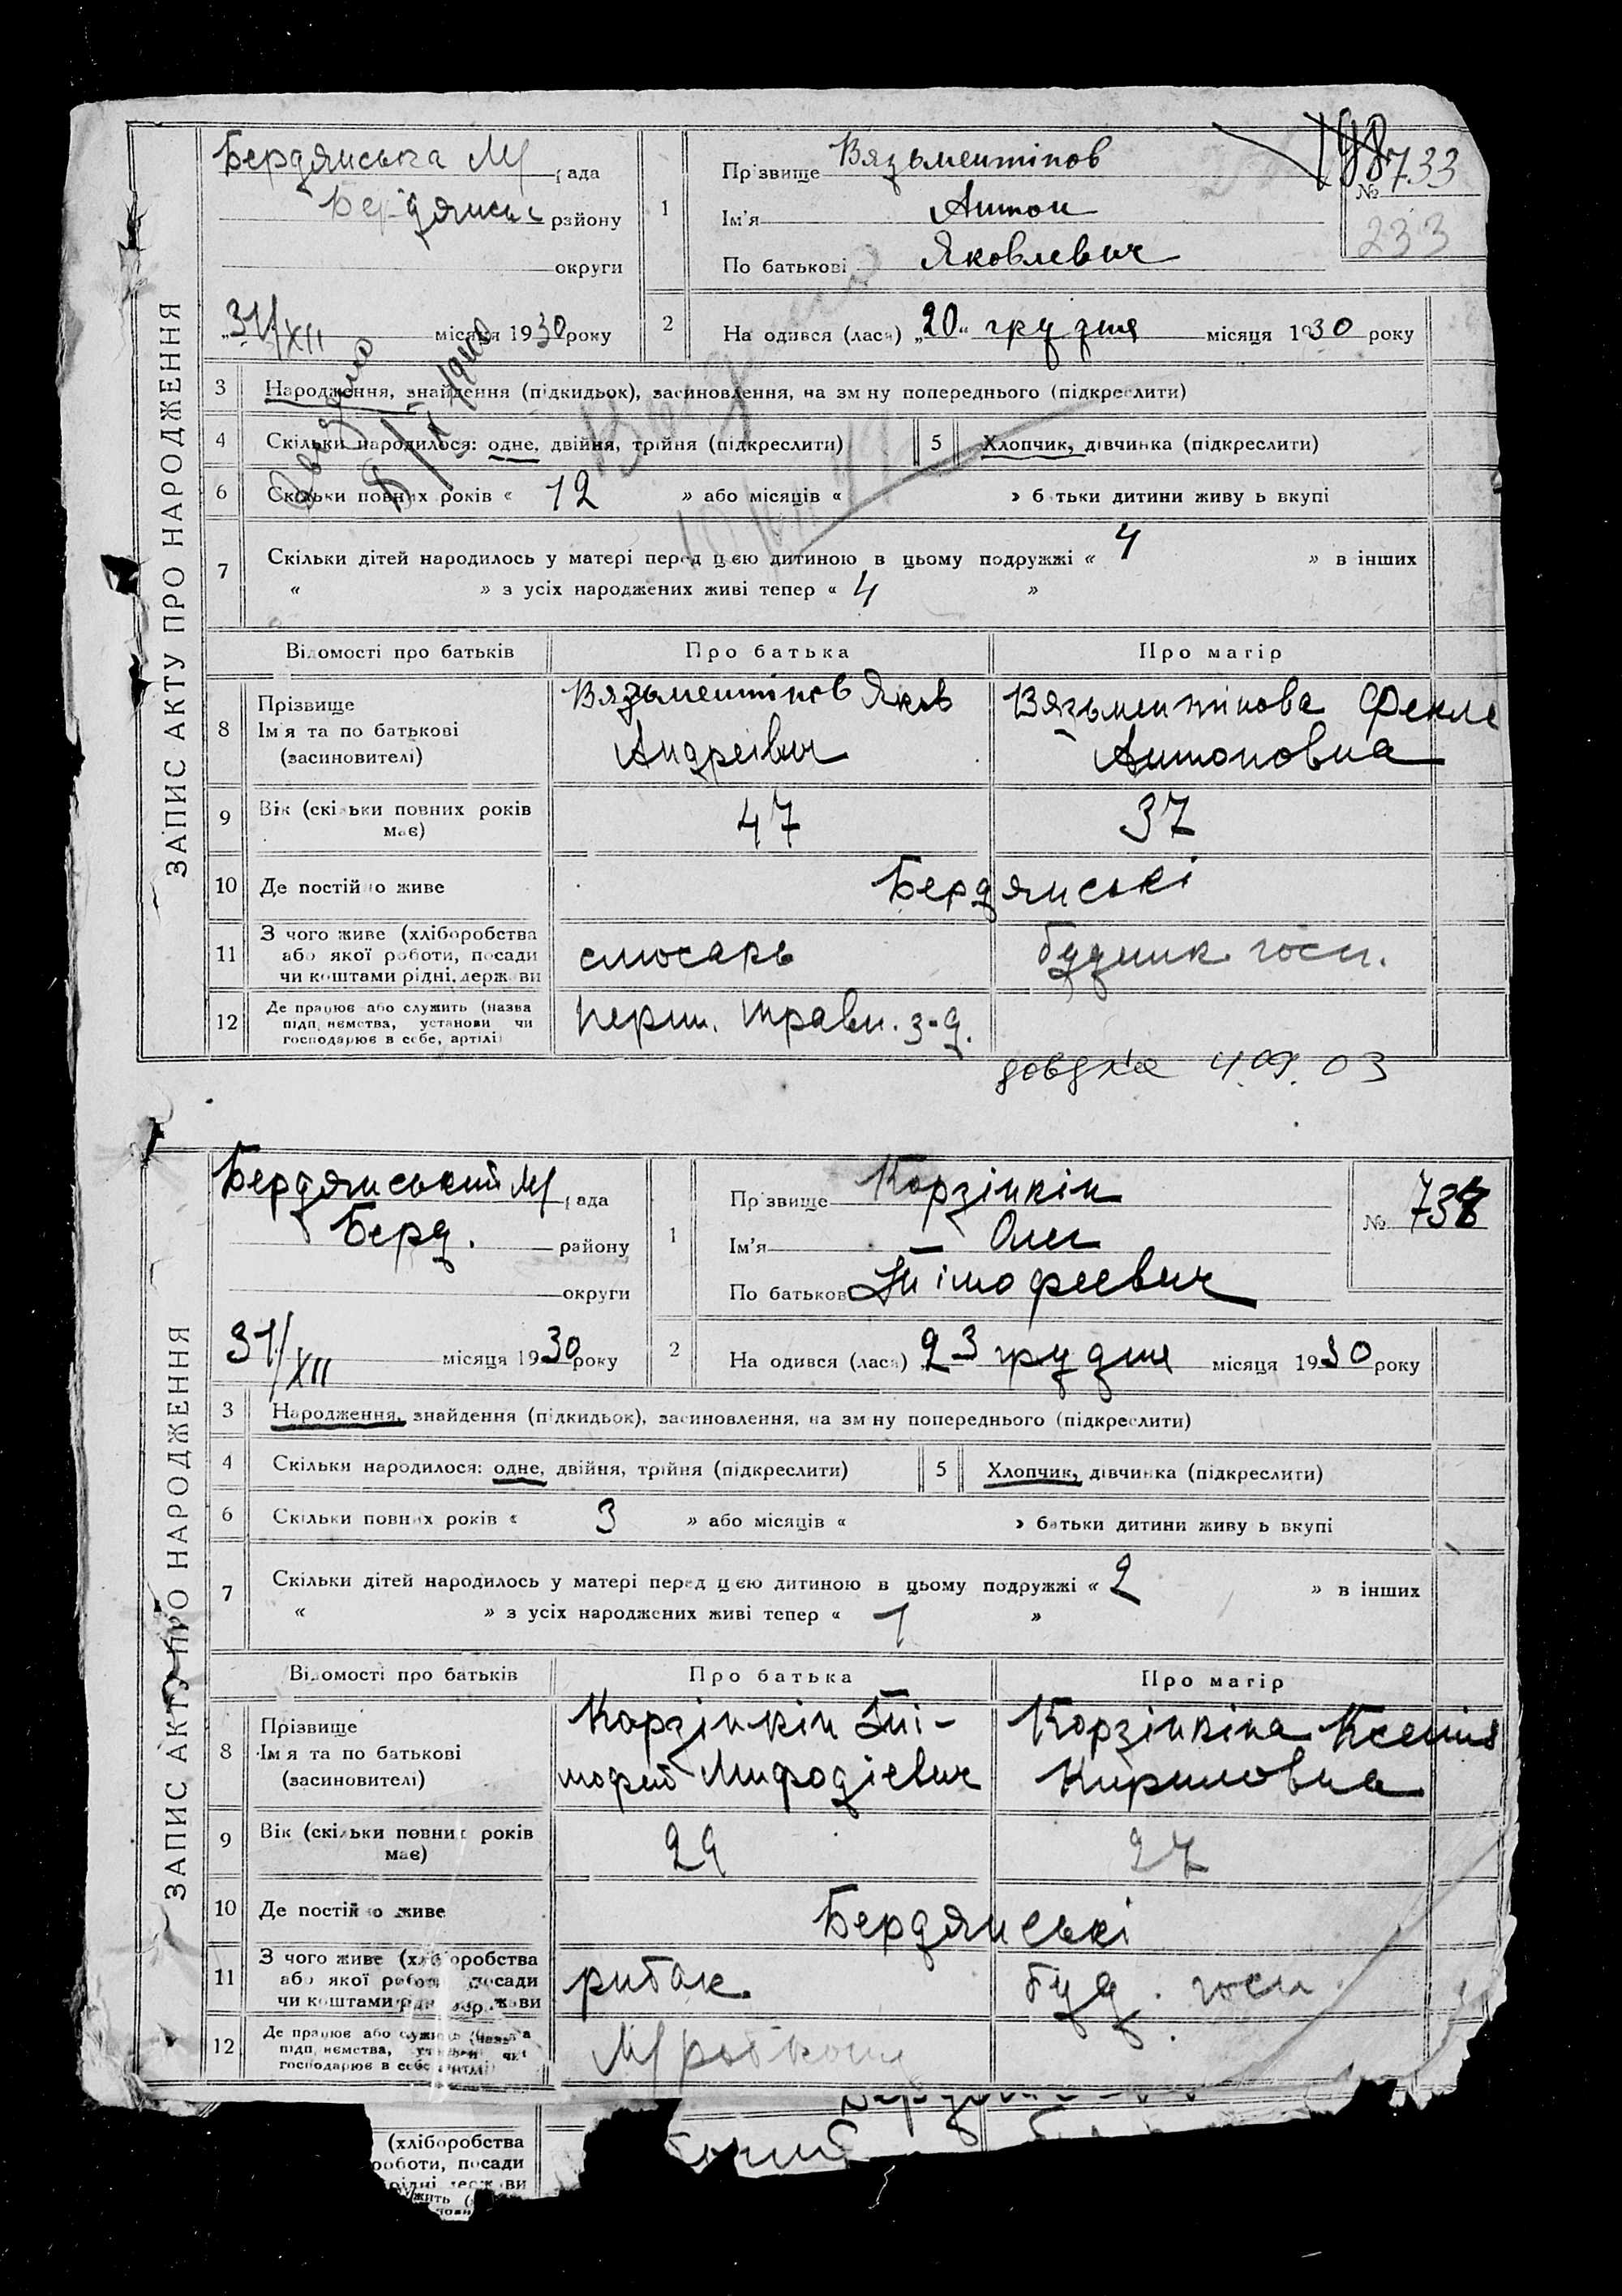 ЗАПИС АКТУ ПРО НАРОДЖЕННЯ
Бердянська М/рада
Бердянськ району
округи
31/XII місяця 1930 року
1
Прізвище Вязьментінов
Ім'я Антон
По батькові Яковлевич
№ 733
233
2
На одився (лася) „20" грудня місяця 1930 року
3 Народження, знайдення (підкидьок), засиновлення, на зм ну попереднього (підкреслити)
4 Скільки народилося: одне, двійня, трійня (підкреслити)
5 Хлопчик, дівчинка (підкреслити)
6 Скільки повних років « 12 » або місяців « » б тьки дитини живу ь вкупі
7 Скільки дітей народилось у матері перед цією дитиною в цьому подружжі « 4 » в інших
« » з усіх народжених живі тепер « 4 »
Відомості про батьків Про батька Про матір
8 Прізвище
Ім'я та по батькові
(засиновителі)
Вязьментінов Яков
Андреівич
Вязьментінова Фекле
Антоновна
9 Вік (скільки повних років
має)
47 37
10 Де постійно живе Бердянські
11 З чого живе (хліборобства
або якої роботи, посади
чи коштами рідні, держави
слюсарь
будинк. госп.
12 Де працює або служить (назва
підп иємства, установи чи
господарює в себе, артілі)
Перш. Травн. з-д.
довідка 4.09.03
ЗАПИС АКТУ ПРО НАРОДЖЕННЯ
Бердянський М/рада
Берд. району
округи
31/XII місяця 1930 року
1
Прізвище Корзінкін
Ім'я Олег
По батькові Тімофеевич
№
2
На одився (лася) 23 грудня місяця 1930 року
3 Народження, знайдення (підкидьок), засиновлення, на зм ну попереднього (підкреслити)
4 Скільки народилося: одне, двійня, трійня (підкреслити)
5 Хлопчик, дівчинка (підкреслити)
6 Скільки повних років « 3 » або місяців « » батьки дитини живу ь вкупі
7 Скільки дітей народилось у матері перед цією дитиною в цьому подружжі « 2 » в інших
« » з усіх народжених живі тепер « 1 »
Відомості про батьків Про батька Про матір
8 Прізвище
Ім'я та по батькові
(засиновителі)
Корзінкін Ті-
мофей Мифодіевич
Корзінкіна Ксенія
Кириловна
9 Вік (скільки повних років
має)
29 27
10 Де постійно живе Бердянські
11 З чого живе (хліборобства
або якої роботи, посади
чи коштами рідні, держави
рибак
буд. госп.
12 Де працює або служить (назва
підп иємства, установи чи
господарює в себе, артілі)
М/рабкооп
(хліборобства
роботи, посади
рідні держ ви